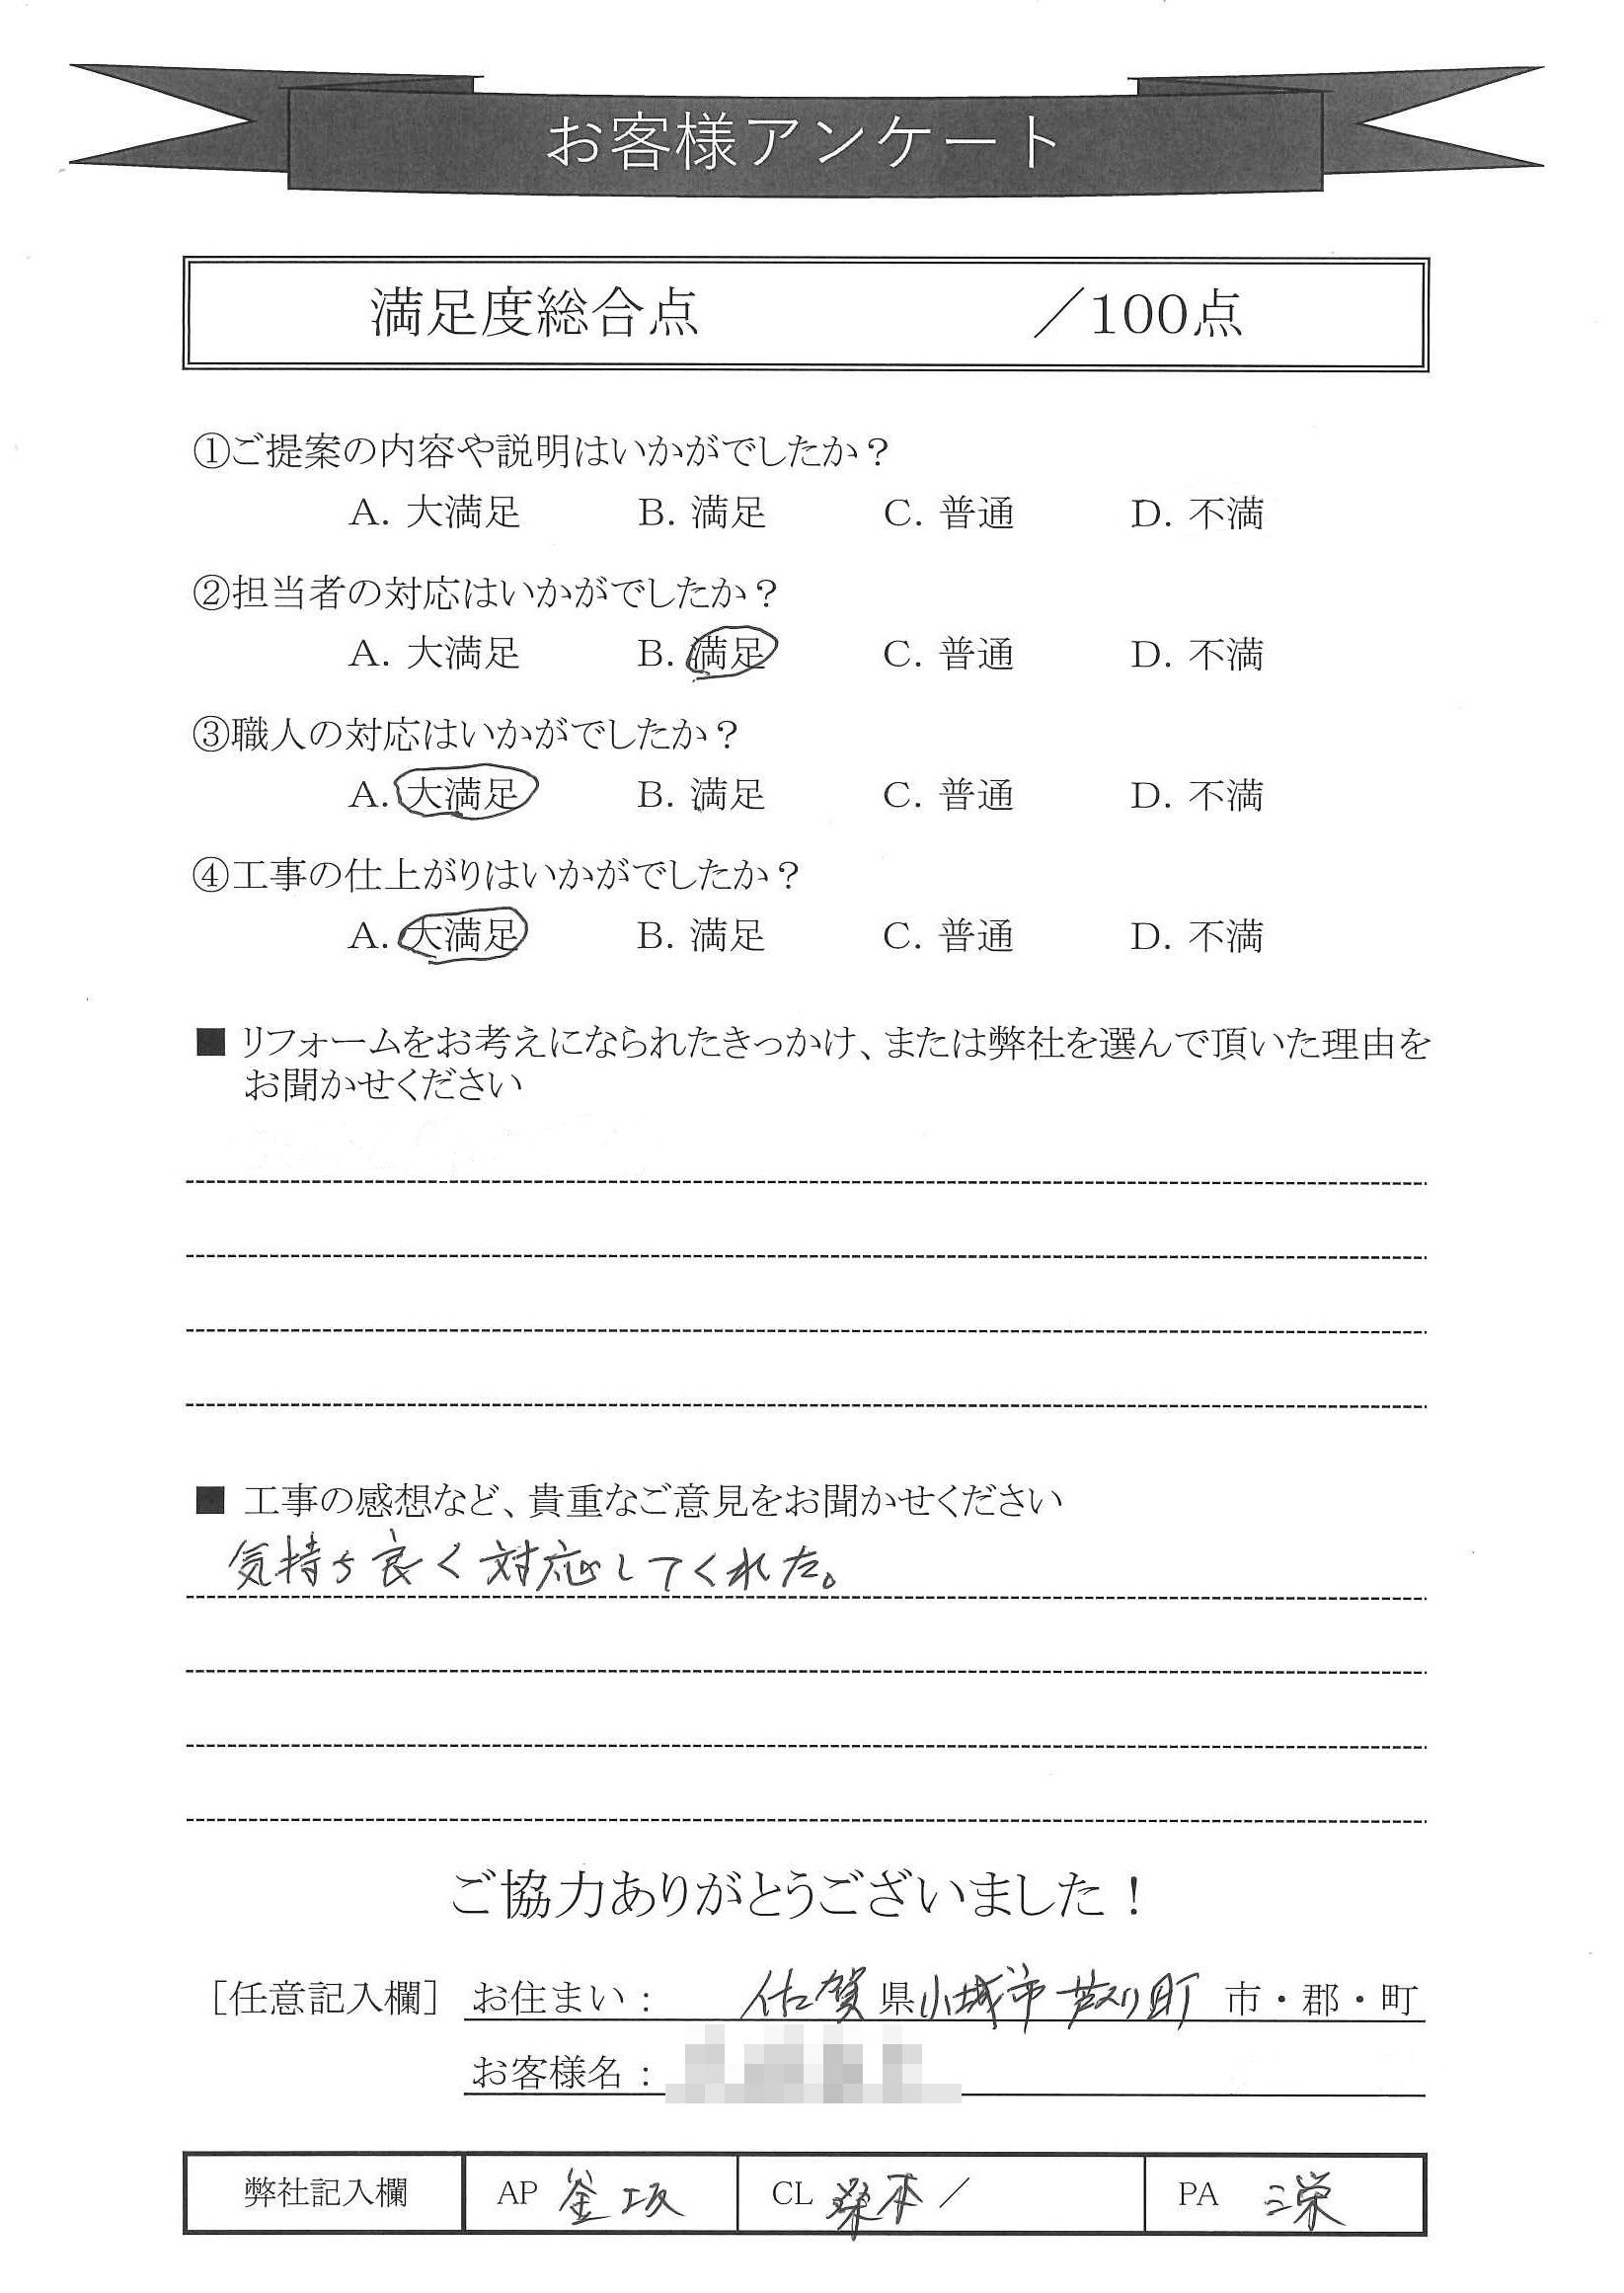 お客様アンケート
満足度総合点 ／100点
①ご提案の内容や説明はいかがでしたか？
A. 大満足 B. 満足 C. 普通 D. 不満
②担当者の対応はいかがでしたか？
A. 大満足 B. 満足 C. 普通 D. 不満
③職人の対応はいかがでしたか？
A. 大満足 B. 満足 C. 普通 D. 不満
④工事の仕上がりはいかがでしたか？
A. 大満足 B. 満足 C. 普通 D. 不満
■ リフォームをお考えになられたきっかけ、または弊社を選んで頂いた理由を
お聞かせください
■ 工事の感想など、貴重なご意見をお聞かせください
気持ち良く対応してくれた。
ご協力ありがとうございました！
［任意記入欄］ お住まい： 佐賀県小城市芦刈町 市・郡・町
お客様名：
弊社記入欄 AP 釜坂 CL 桑本 ／ PA 三栄